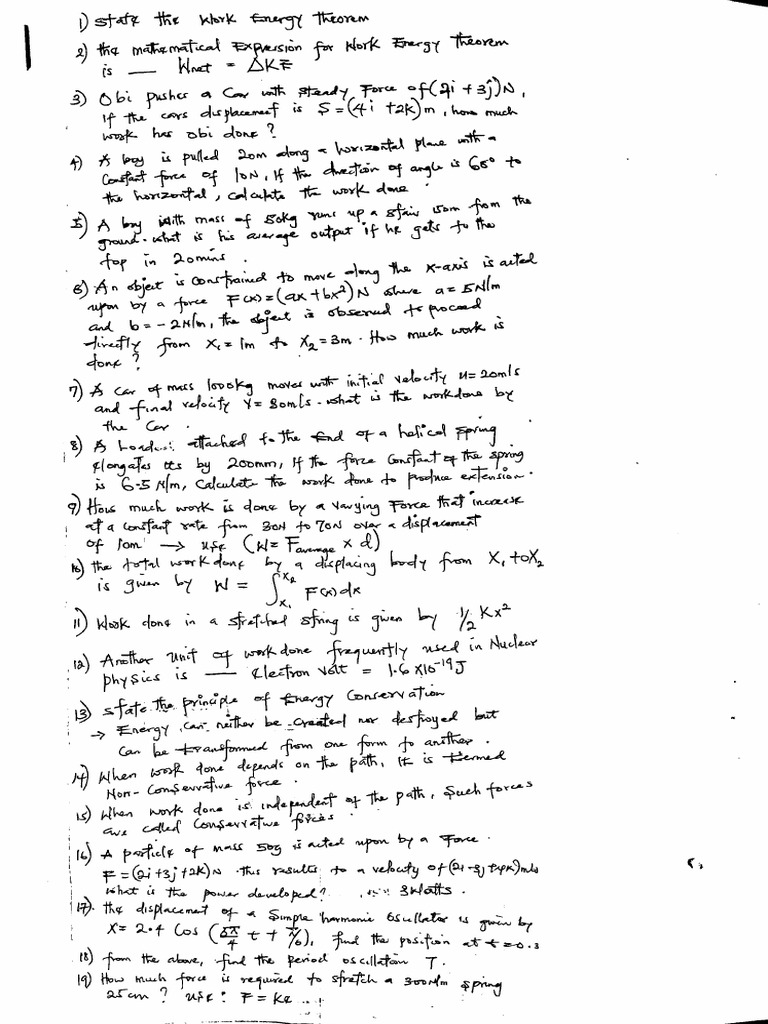 1) State the Work Energy Theorem
2) the mathematical Expression for Work Energy Theorem
is — Wnet = ΔKE
3) Obi pushes a Car with steady Force of (2i + 3j)N,
If the cars displacement is S = (4i + 2k)m, how much
work has Obi done?
4) A boy is pulled 20m along a horizontal plane with a
Constant force of 10N, If the direction of angle is 60° to
the horizontal, calculate the work done.
5) A boy with mass of 50kg runs up a stair 150m from the
ground. what is his average output if he gets to the
top in 20mins.
6) An object is constrained to move along the x-axis is acted
upon by a force F(x) = (ax + bx²)N where a = 5N/m
and b = -2N/m, the object is observed to proceed
directly from X₁ = 1m to X₂ = 3m. How much work is
done?
7) A car of mass 1000kg moves with initial velocity U = 20m/s
and final velocity V = 30m/s. what is the workdone by
the Car.
8) A Load attached to the End of a helical spring
Elongates its by 200mm, If the force Constant of the spring
is 6.5 N/m, Calculate the work done to produce extension.
9) How much work is done by a varying Force that increase
at a constant rate from 30N to 70N over a displacement
of 10m → use (W = Faverage x d)
10) the total work done by a displacing body from X₁ to X₂
is given by W = ∫ˣ²ₓ₁ F(x) dx
11) Work done in a stretched string is given by 1/2 Kx²
12) Another unit of workdone frequently used in Nuclear
physics is — Electron volt = 1.6 x10⁻¹⁹J
13) State the principle of Energy Conservation
→ Energy can neither be created nor destroyed but
Can be transformed from one form to another.
14) When work done depends on the path, It is termed
Non-Conservative force.
15) When work done is independent of the path, Such forces
are called Conservative forces.
16) A particle of mass 50g is acted upon by a Force.
F = (2i + 3j + 2k)N this results to a velocity of (2i - 3j + 4k)m/s
what is the power developed? 3Watts.
17) the displacement of a Simple harmonic Oscillator is given by
X = 2.4 Cos (5π/4 t + π/6), find the position at t = 0.3
18) from the above, find the period oscillation T.
19) How much force is required to stretch a 300N/m spring
25cm? use: F = Ke